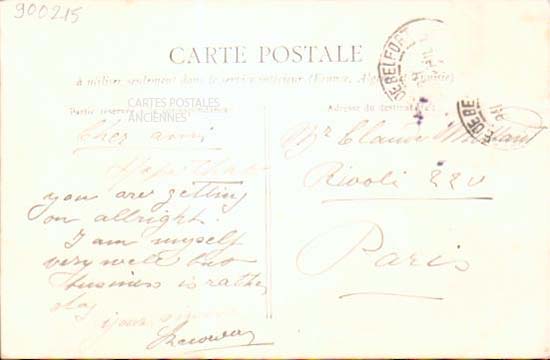 900215
CARTE POSTALE
à utiliser seulement dans le service intérieur (France, Algérie, Tunisie)
DE BELFORT
CARTES POSTALES
ANCIENNES
Partie réservée
Adresse du destinataire
Cher ami
Mr Claude
Rivoli 220
Paris
I hope that
you are getting
on allright.
I am myself
very well but
business is rather
yours